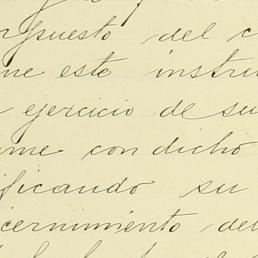 rpuesto del c
ne este instru
ejercicio de su
me con dicho
ificando su
cernimiento del